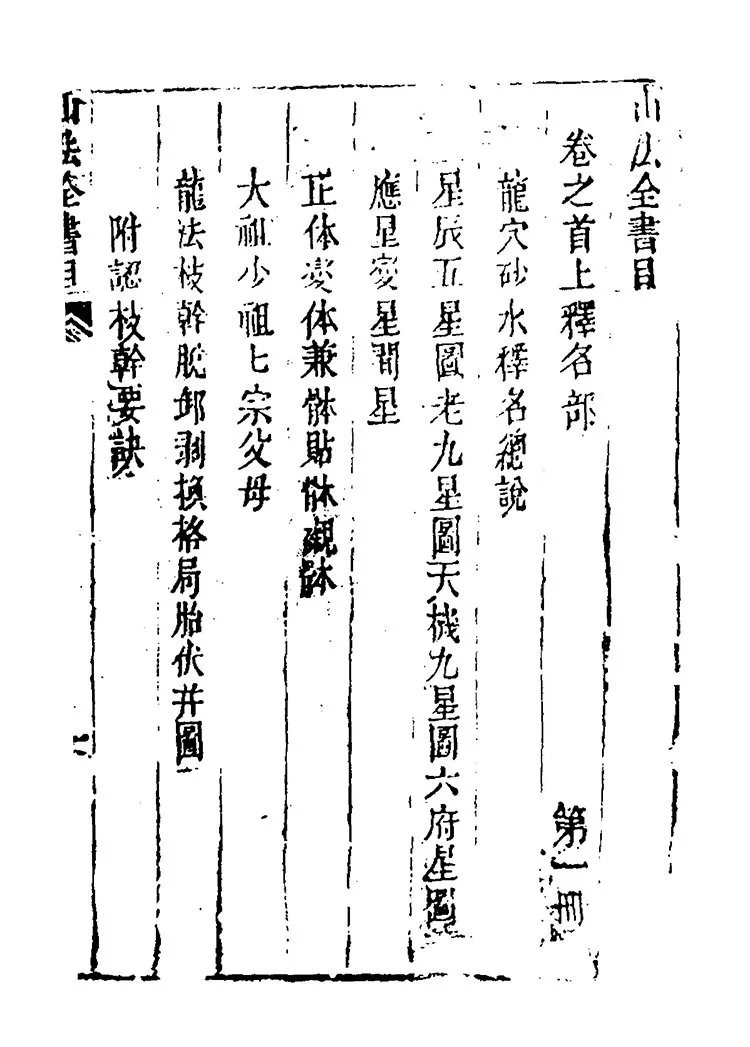 山法全書目
卷之首上釋名部 第一冊
龍穴砂水釋名總說
星辰五星圖老九星圖天機九星圖六府星圖
應星變星間星
正体变体兼體貼体襯体
大祖少祖七宗父母
龍法枝幹脫卸剥換格局胎伏并圖
附認枝幹要訣
山法全書目